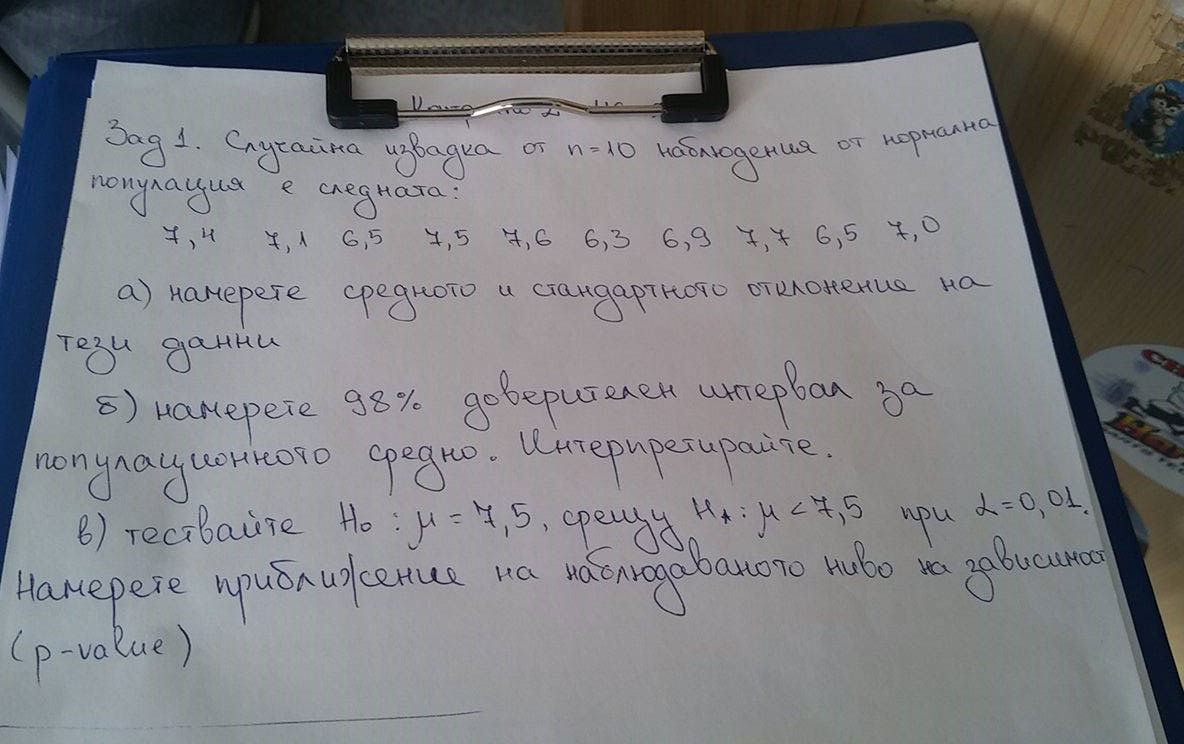 Зад 1. Случайна извадка от n=10 наблюдения от нормална
популация е следната:
7,4 7,1 6,5 7,5 7,6 6,3 6,9 7,7 6,5 7,0
а) намерете средното и стандартното отклонение на
тези данни
б) намерете 98% доверителен интервал за
популационното средно. Интерпретирайте.
в) тествайте H₀ : μ = 7,5, срещу Hₐ : μ < 7,5 при α=0,01.
Намерете приближение на наблюдаваното ниво на зависимост
(p-value)